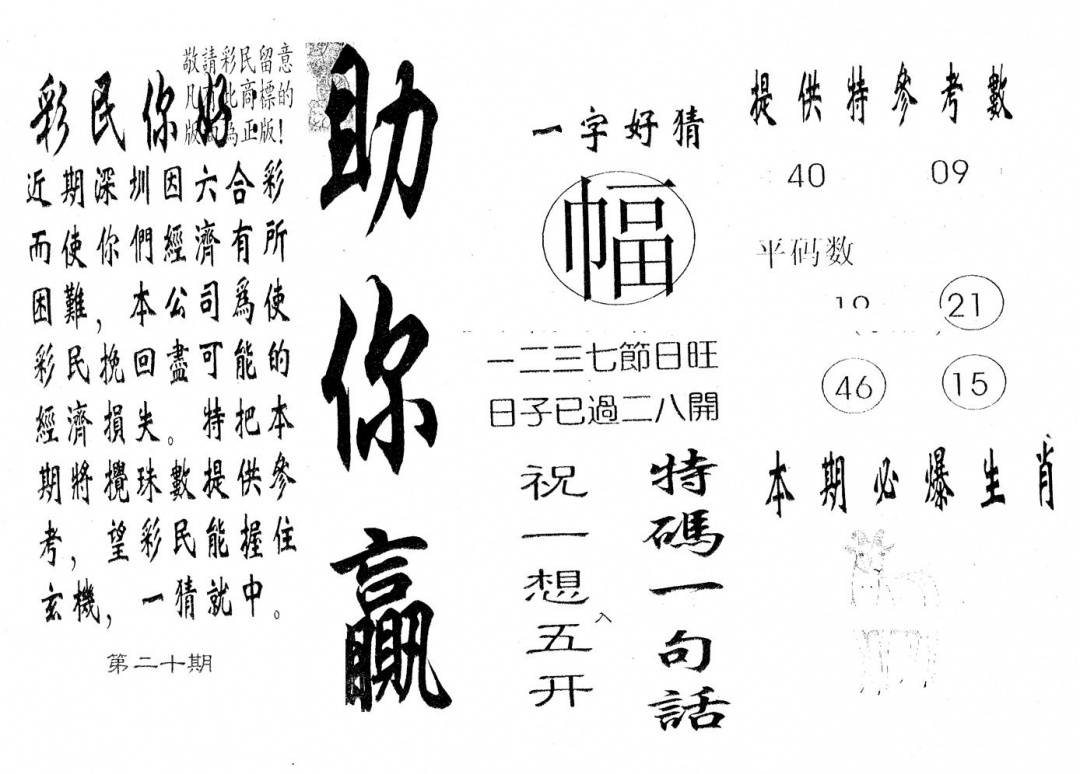 敬請彩民留意
凡
此商標的
版
為正版!
彩民你好
近期深圳因六合彩
而使你們經濟有所
困難，本公司爲使
彩民挽回盡可能的
經濟損失。特把本
期將攪珠數提供參
考，望彩民能握住
玄機，一猜就中。
第二十期
助你贏
一字好猜
幅
一二三七節日旺
日子已過二八開
特碼一句話
祝一想五开
入
提供特參考數
40 09
平码数
21
46 15
本期必爆生肖